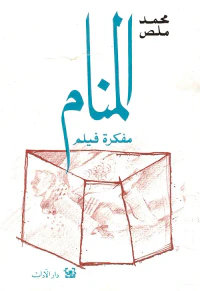 محمد
ملص
المنام
مفكرة فيلم
دار الآداب